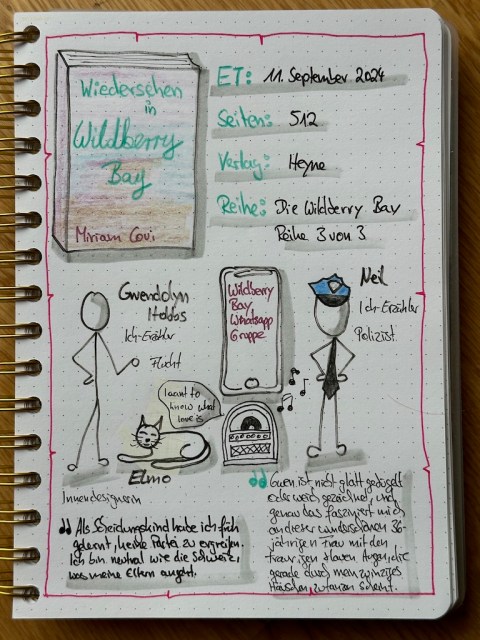 Wiedersehen
in
Wildberry
Bay
Miriam Covi
ET: 11. September 2024
Seiten: 512
Verlag: Heyne
Reihe: Die Wildberry Bay
Reihe 3 von 3
Gwendolyn
Ich-Erzähler
Flucht
Wildberry
Bay
Whatsapp
Gruppe
Neil
Ich-Erzähler
Polizist
I want to
know what
love is
Elmo
Innendesignerin
Als Scheidungskind habe ich früh
gelernt, keine Partei zu ergreifen.
Ich bin neutral wie die Schweiz,
was meine Eltern angeht.
Gwen ist nicht glatt gebügelt
oder weich gezeichnet, und
genau das fasziniert mich
an dieser wunderschönen 36-
jährigen Frau mit den
traurigen blauen Augen, die
gerade durch mein winziges
Häuschen zu tanzen scheint.